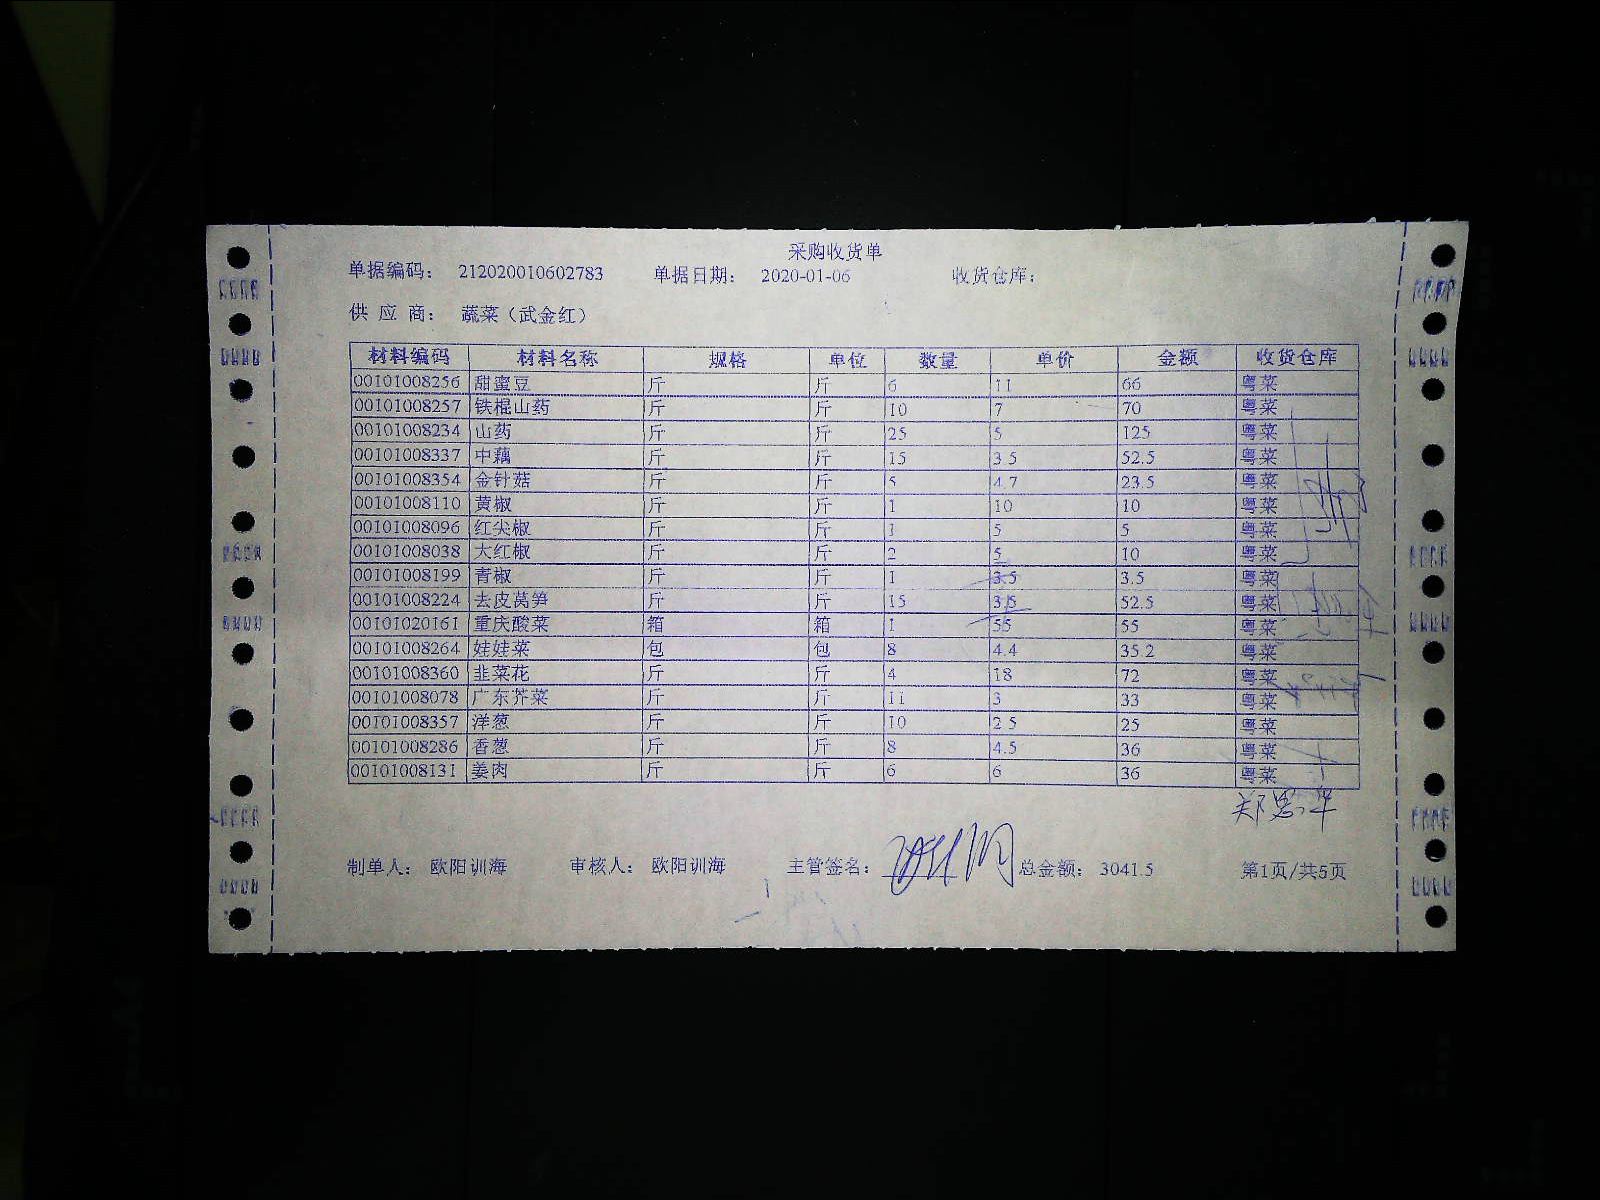 采购收货单
单据编码： 212020010602783 单据日期： 2020-01-06 收货仓库：
供 应 商： 蔬菜（武金红）
材料编码 材料名称 规格 单位 数量 单价 金额 收货仓库
00101008256 甜蜜豆 斤 斤 6 11 66 粤菜
00101008257 铁棍山药 斤 斤 10 7 70 粤菜
00101008234 山药 斤 斤 25 5 125 粤菜
00101008337 中藕 斤 斤 15 3.5 52.5 粤菜
00101008354 金针菇 斤 斤 5 4.7 23.5 粤菜
00101008110 黄椒 斤 斤 1 10 10 粤菜
00101008096 红尖椒 斤 斤 1 5 5 粤菜
00101008038 大红椒 斤 斤 2 5 10 粤菜
00101008199 青椒 斤 斤 1 3.5 3.5 粤菜
00101008224 去皮莴笋 斤 斤 15 3.5 52.5 粤菜
00101020161 重庆酸菜 箱 箱 1 55 55 粤菜
00101008264 娃娃菜 包 包 8 4.4 35.2 粤菜
00101008360 韭菜花 斤 斤 4 18 72 粤菜
00101008078 广东芥菜 斤 斤 11 3 33 粤菜
00101008357 洋葱 斤 斤 10 2.5 25 粤菜
00101008286 香葱 斤 斤 8 4.5 36 粤菜
00101008131 姜肉 斤 斤 6 6 36 粤菜
制单人： 欧阳训海 审核人： 欧阳训海 主管签名： 总金额： 3041.5 第1页/共5页